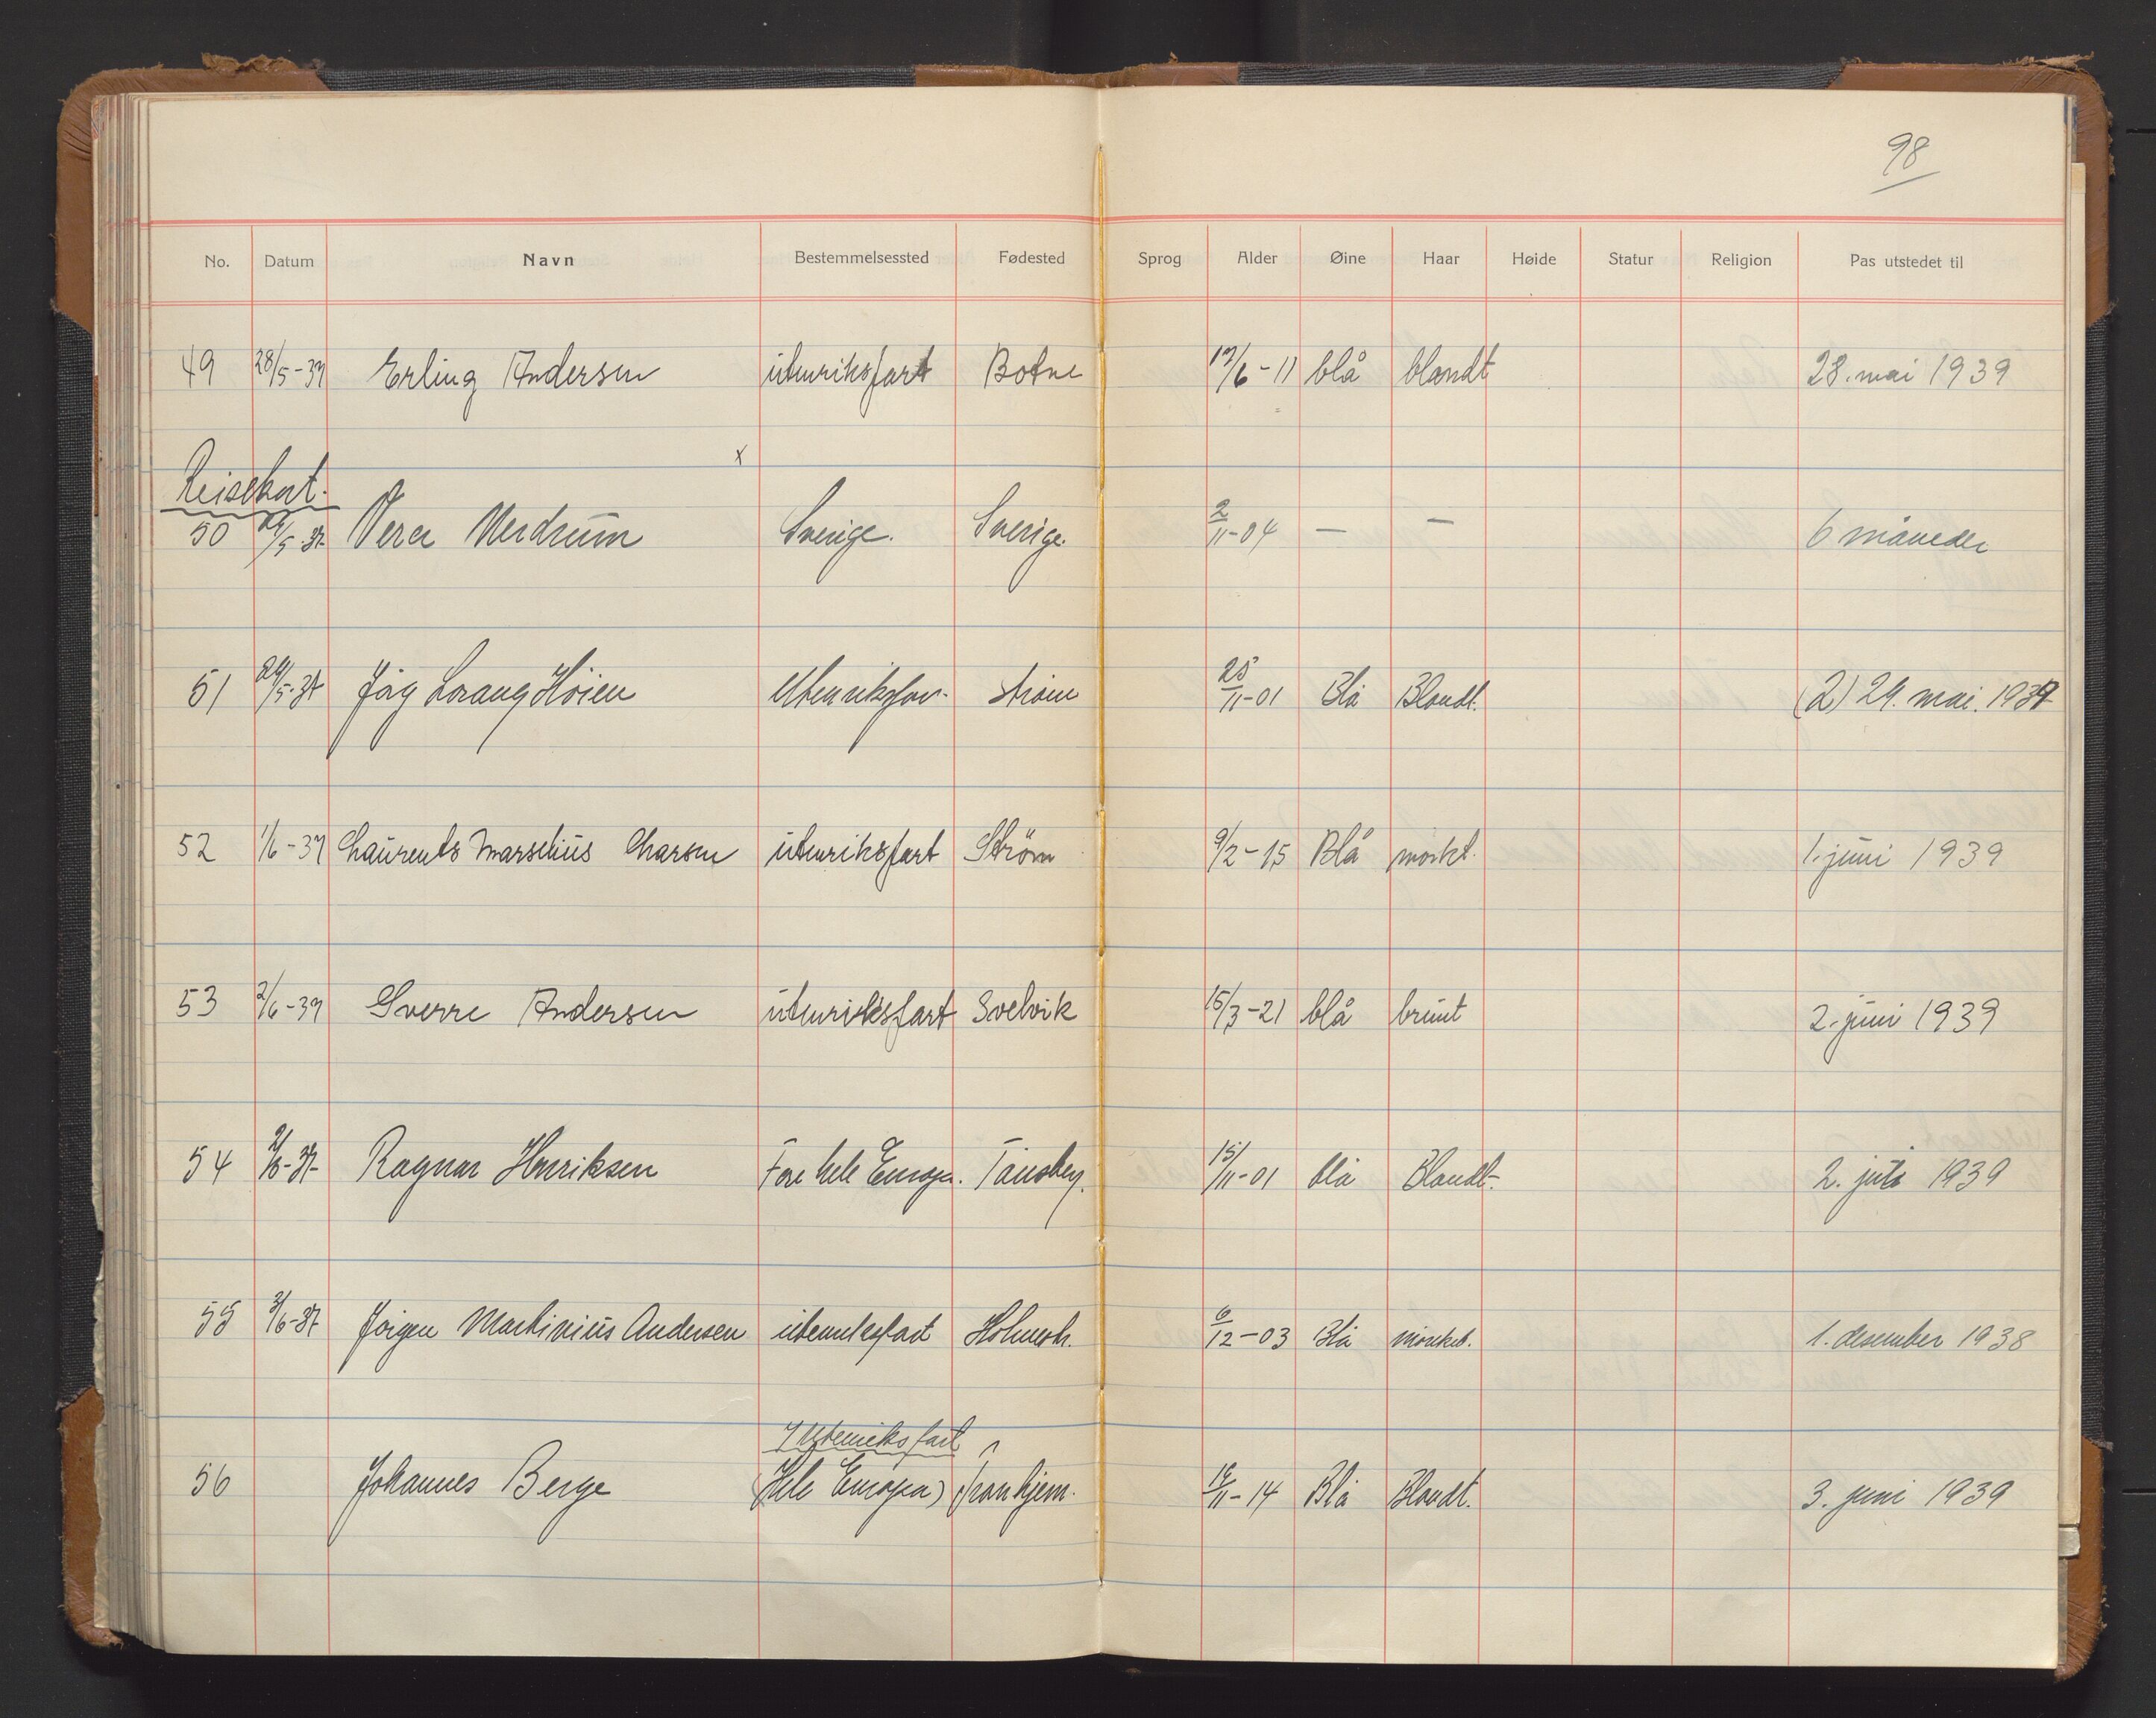 98
No. Datum Navn Bestemmelsessted Fødested Sprog Alder Øine Haar Høide Statur Religion Pas utstedet til
49 28/5-37 Erling Andersen utenriksfart Botne 17/6-11 blå blondt 28. mai 1939
x
Reisekort.
50 29/5-37 Vera Merdrum Sverige. Sverige. 2/11-04 — — 6 måneder
51 29/5-37 Høien Strøm 25/11-01 Blå Blondt. (2) 29. mai. 1939
52 1/6-37 Laurents Marselius Larsen utenriksfart Strøm 9/2-15 Blå mørkt. 1. juni 1939
53 2/6-37 Sverre Andersen utenriksfart Svelvik 15/3-21 blå brunt 2. juni 1939
54 2/6-37 Ragnar Henriksen For hele Europa. Tønsberg. 15/11-01 blå Blondt. 2. juli 1939
55 3/6-37 Jørgen Martinius Andersen utenriksfart Holmestr. 6/12-03 Blå mørket. 1. desember 1938
I utenriksfart
56 Johannes Berge (Hele Europa) Tronhjem. 14 Blå Blondt. 3. juni 1939